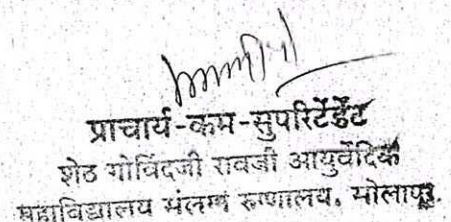 प्राचार्य-कम-सुपरिटेंडेंट
शेठ गोविंदजी रावजी आयुर्वेदिक
महाविद्यालय संलग्न रुग्णालय, सोलापूर.